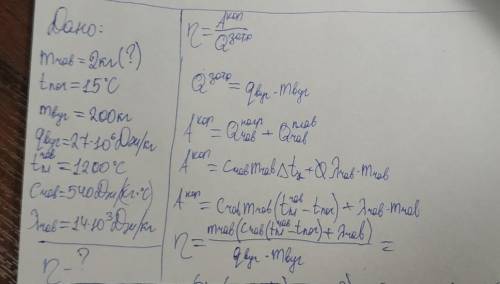 Дано:
mчав = 2кг (?)
tпог = 15°C
mвуг = 200кг
qвуг = 27·10⁶ Дж/кг
tплчав = 1200°C
Cчав = 540 Дж/(кг·°C)
λчав = 14·10³ Дж/кг
η - ?
η = Aкор / Qзатр
Qзатр = qвуг · mвуг
Aкор = Qнагрчав + Qплавчав
Aкор = Cчав mчав Δt + λчав · mчав
Aкор = Cчав mчав (tплчав - tпог) + λчав · mчав
η = mчав (Cчав (tплчав - tпог) + λчав) / qвуг · mвуг =